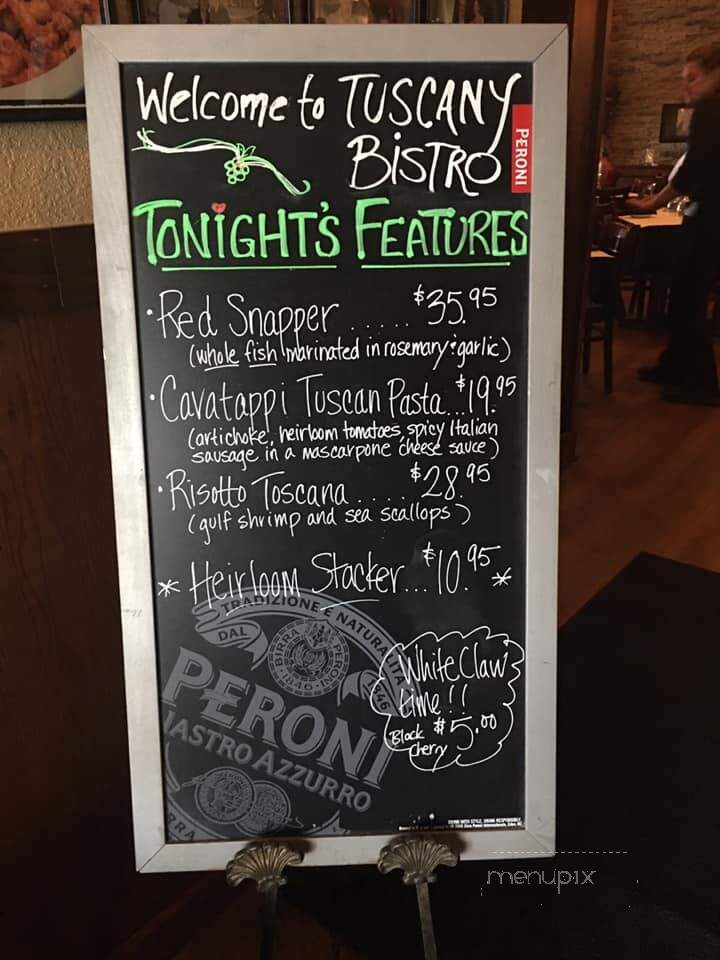 Welcome to TUSCANY
BiSTRO
PERONI
TONiGHT'S FEATURES
· Red Snapper ..... $35.95
(whole fish marinated in rosemary & garlic)
· Cavatappi Tuscan Pasta...$19.95
(artichoke, heirloom tomatoes, spicy Italian
sausage in a mascarpone cheese sauce)
· Risotto Toscana ..... $28.95
(gulf shrimp and sea scallops)
* Heirloom Stacker...$10.95 *
TRADIZIONE E NATURA ITA
DAL
1846
BIRRA PERONI
·1846·
PERONI
NASTRO AZZURRO
RRA
White Claw
time!!
Black $5.00
Cherry
menupix